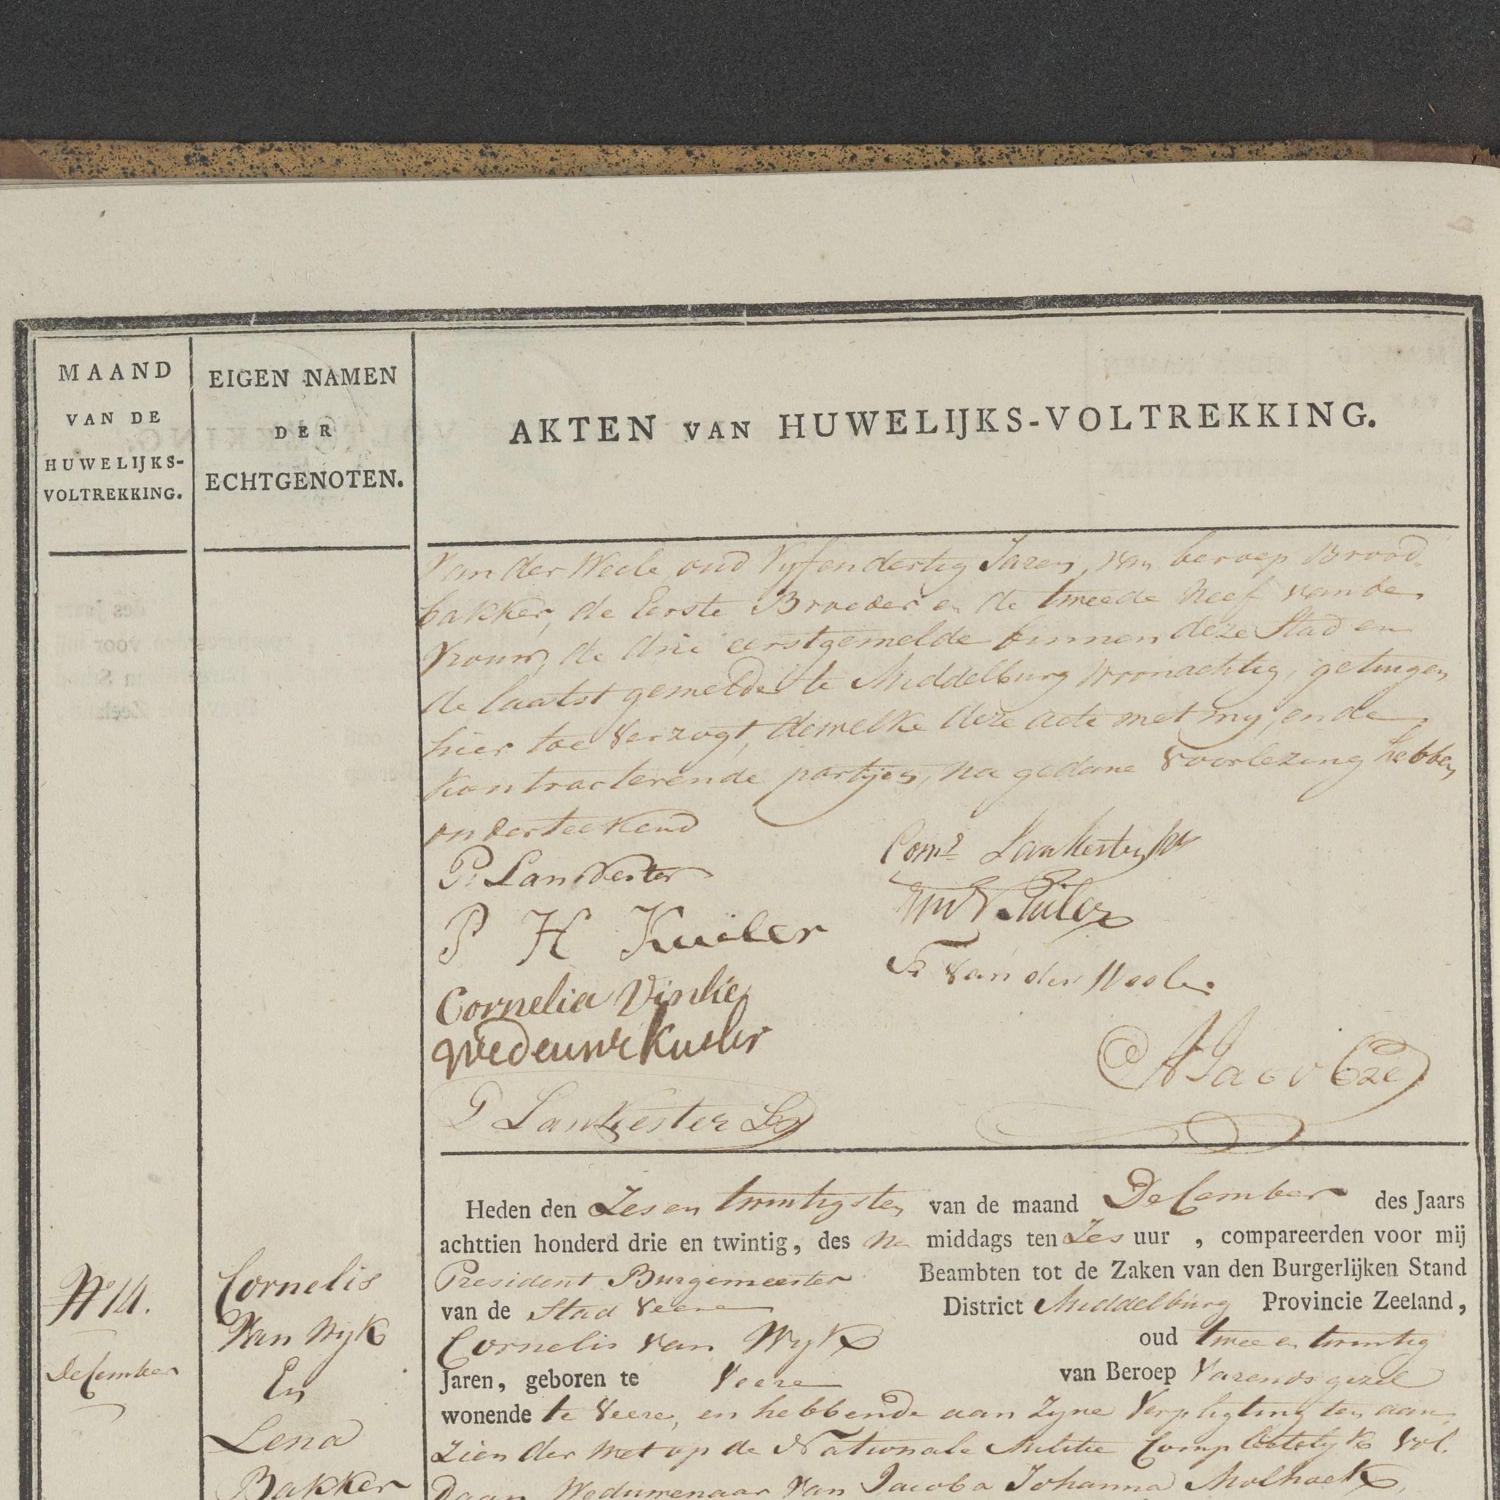 MAAND
VAN DE
HUWELIJKS-
VOLTREKKING.
EIGEN NAMEN
DER
ECHTGENOTEN.
AKTEN VAN HUWELIJKS-VOLTREKKING.
Van der Weele oud Vyfendertig Jaren, van beroep Brood-
bakker, de Eerste Broeder en de tweede Neef van de
Vrouw, de drie eerstgemelde binnen deze Stad en
de laatst gemelde te Middelburg Woonachtig, getuigen
hier toe verzogt, dewelke deze acte met my, en de
Kontracterende partyen, na gedane voorlezing hebben
onderteekend
P. Lankester
P H Kuiler
Cornelia Vinke
Wedeuwe Kuiler
P Lankester
Corns Lankester
Kuiler
F van der Weele
A Jacobze
N 14.
December
Cornelis
Van Wyk
En
Lena
Bakker
Heden den Zes en twintigsten van de maand December des Jaars
achttien honderd drie en twintig, des na middags ten Zes uur , compareerden voor mij
President Burgemeester Beambten tot de Zaken van den Burgerlijken Stand
van de Stad Veere District Middelburg Provincie Zeeland,
Cornelis van Wyk oud twee en twintig
Jaren, geboren te Veere van Beroep Varends gezel
wonende te Veere, en hebbende aan Zyne Verpligting ten aan-
zien der Wet op de Nationale Militie Completelyk vol-
daan Weduwenaar van Jacoba Johanna Molhoek,